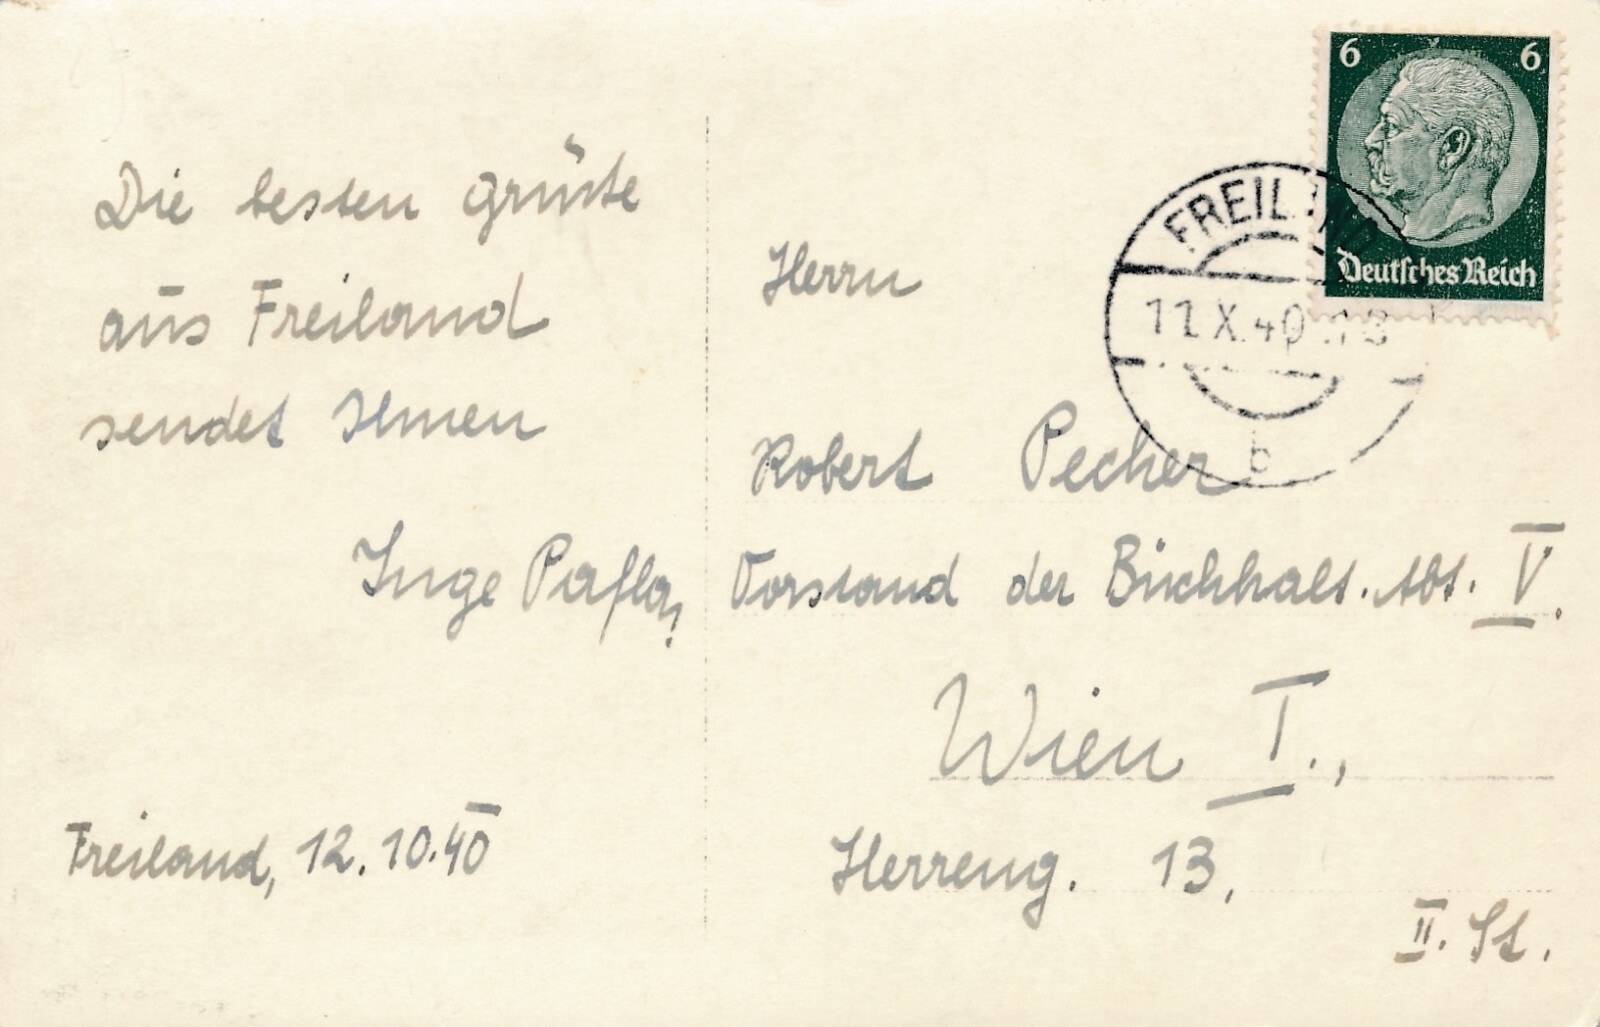 Die besten Grüße
aus Freiland
sendet Ihnen
Inge
Freiland, 12.10.40
6 6
Deutsches Reich
FREIL ND
X.40
b
Herrn
Robert Pecher
Vorstand der Buchhalt. Abt. V.
Wien I.,
Herreng. 13,
II. St.